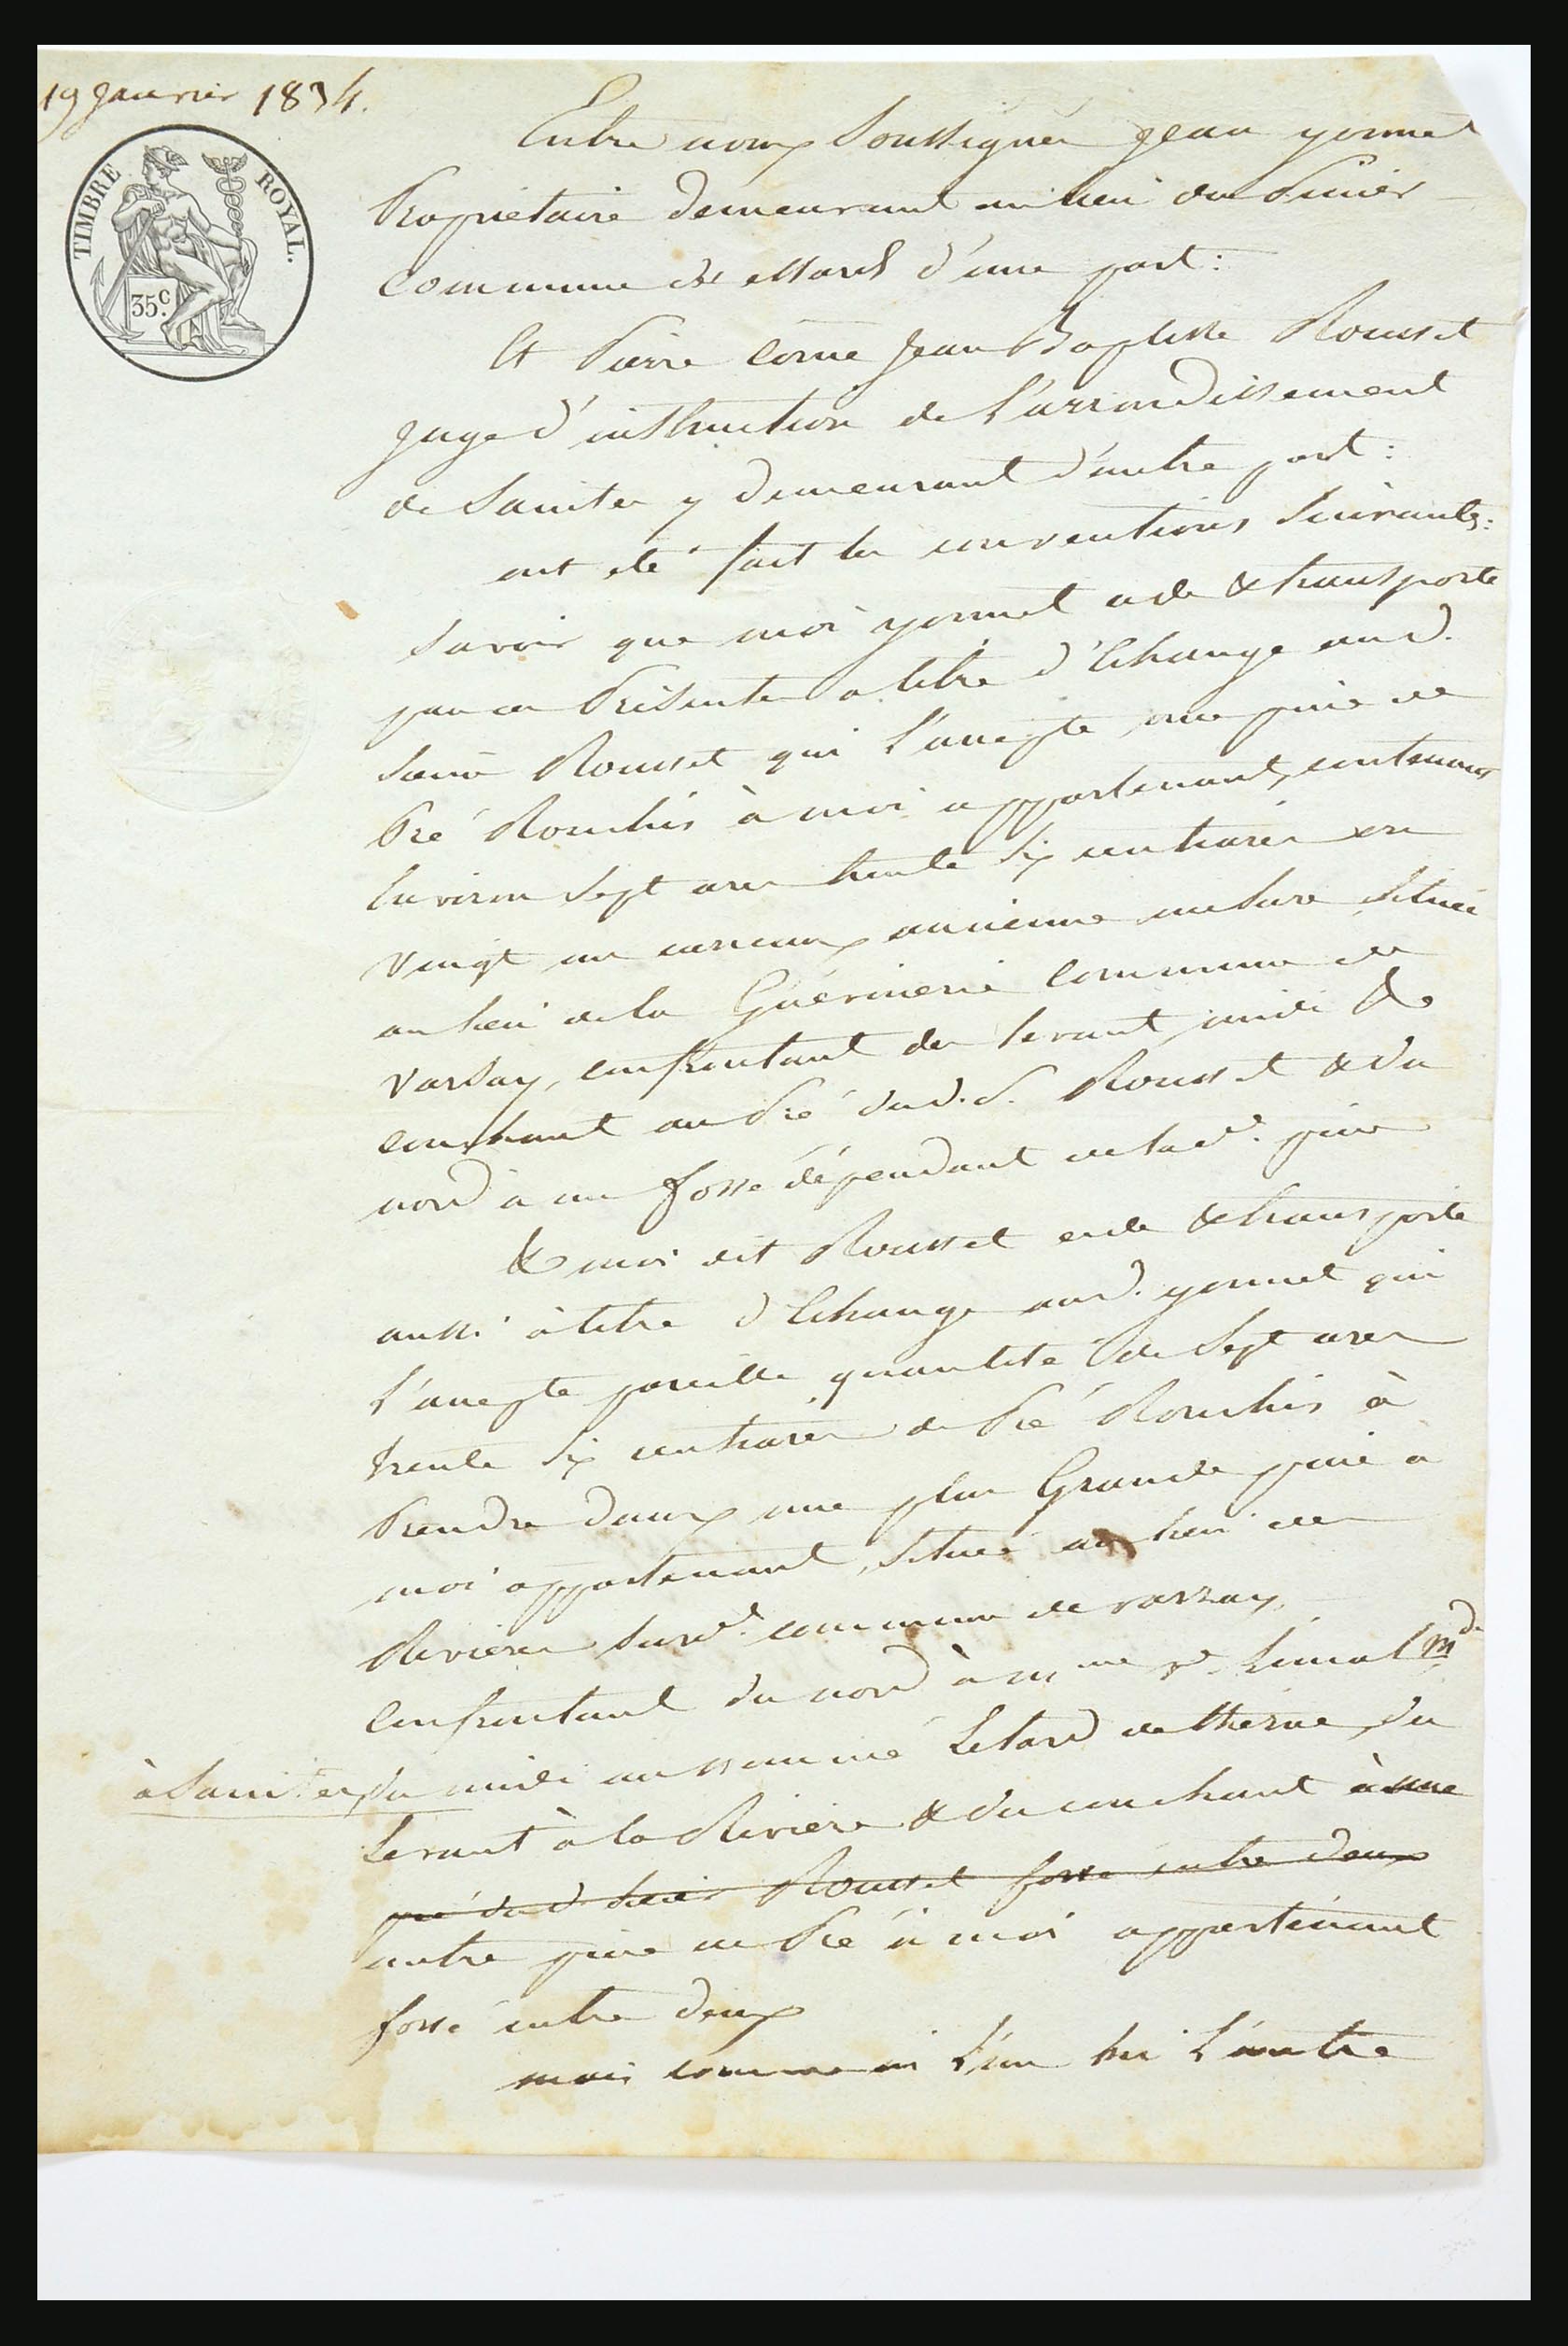 19 Janvier 1834.
TIMBRE ROYAL.
35c.
Entre nous Soussignés Jean yonnet
Propriétaire demeurant au lieu du Pinier
commune des essards d'une part:
Et Pierre Come Jean Baptiste Rousset
Juge d'instruction de l'arrondissement
de Saintes y demeurant d'autre part:
ont été fait les conventions Suivantes:
Savoir que moi yonnet cède & transporte
par ces Présentes a titre d'Echange aud.
Sieur Rousset qui l'accepte une pièce de
Pré Rouchis à moi appartenant, contenant
Environ Sept ares trente Six centiares ou
vingt un carreaux ancienne mesure Située
au lieu de la Guérinerie commune de
varsay, confrontant des levant, midi &
couchant au Pré dud. S. Rousset & du
nord à un fossé dépendant de lad. pièce
& moi dit Rousset cède & transporte
aussi à titre d'Echange aud. yonnet qui
l'accepte pareille quantité de Sept ares
trente Six centiares de Pré Rouchis à
Prendre dans une plus Grande pièce a
moi appartenant, Située au lieu des
Rivières Surd. commune de varzay,
Confrontant du nord à mme ve. md
à Saintes, du midi au nommé Letard de thézac, du
Levant à la Rivière & du couchant à une
pré dud. Sieur Rousset fossé entre deux
autre pièce de Pré à moi appartenant
fossé entre deux
mais comme ni l'un ni l'autre